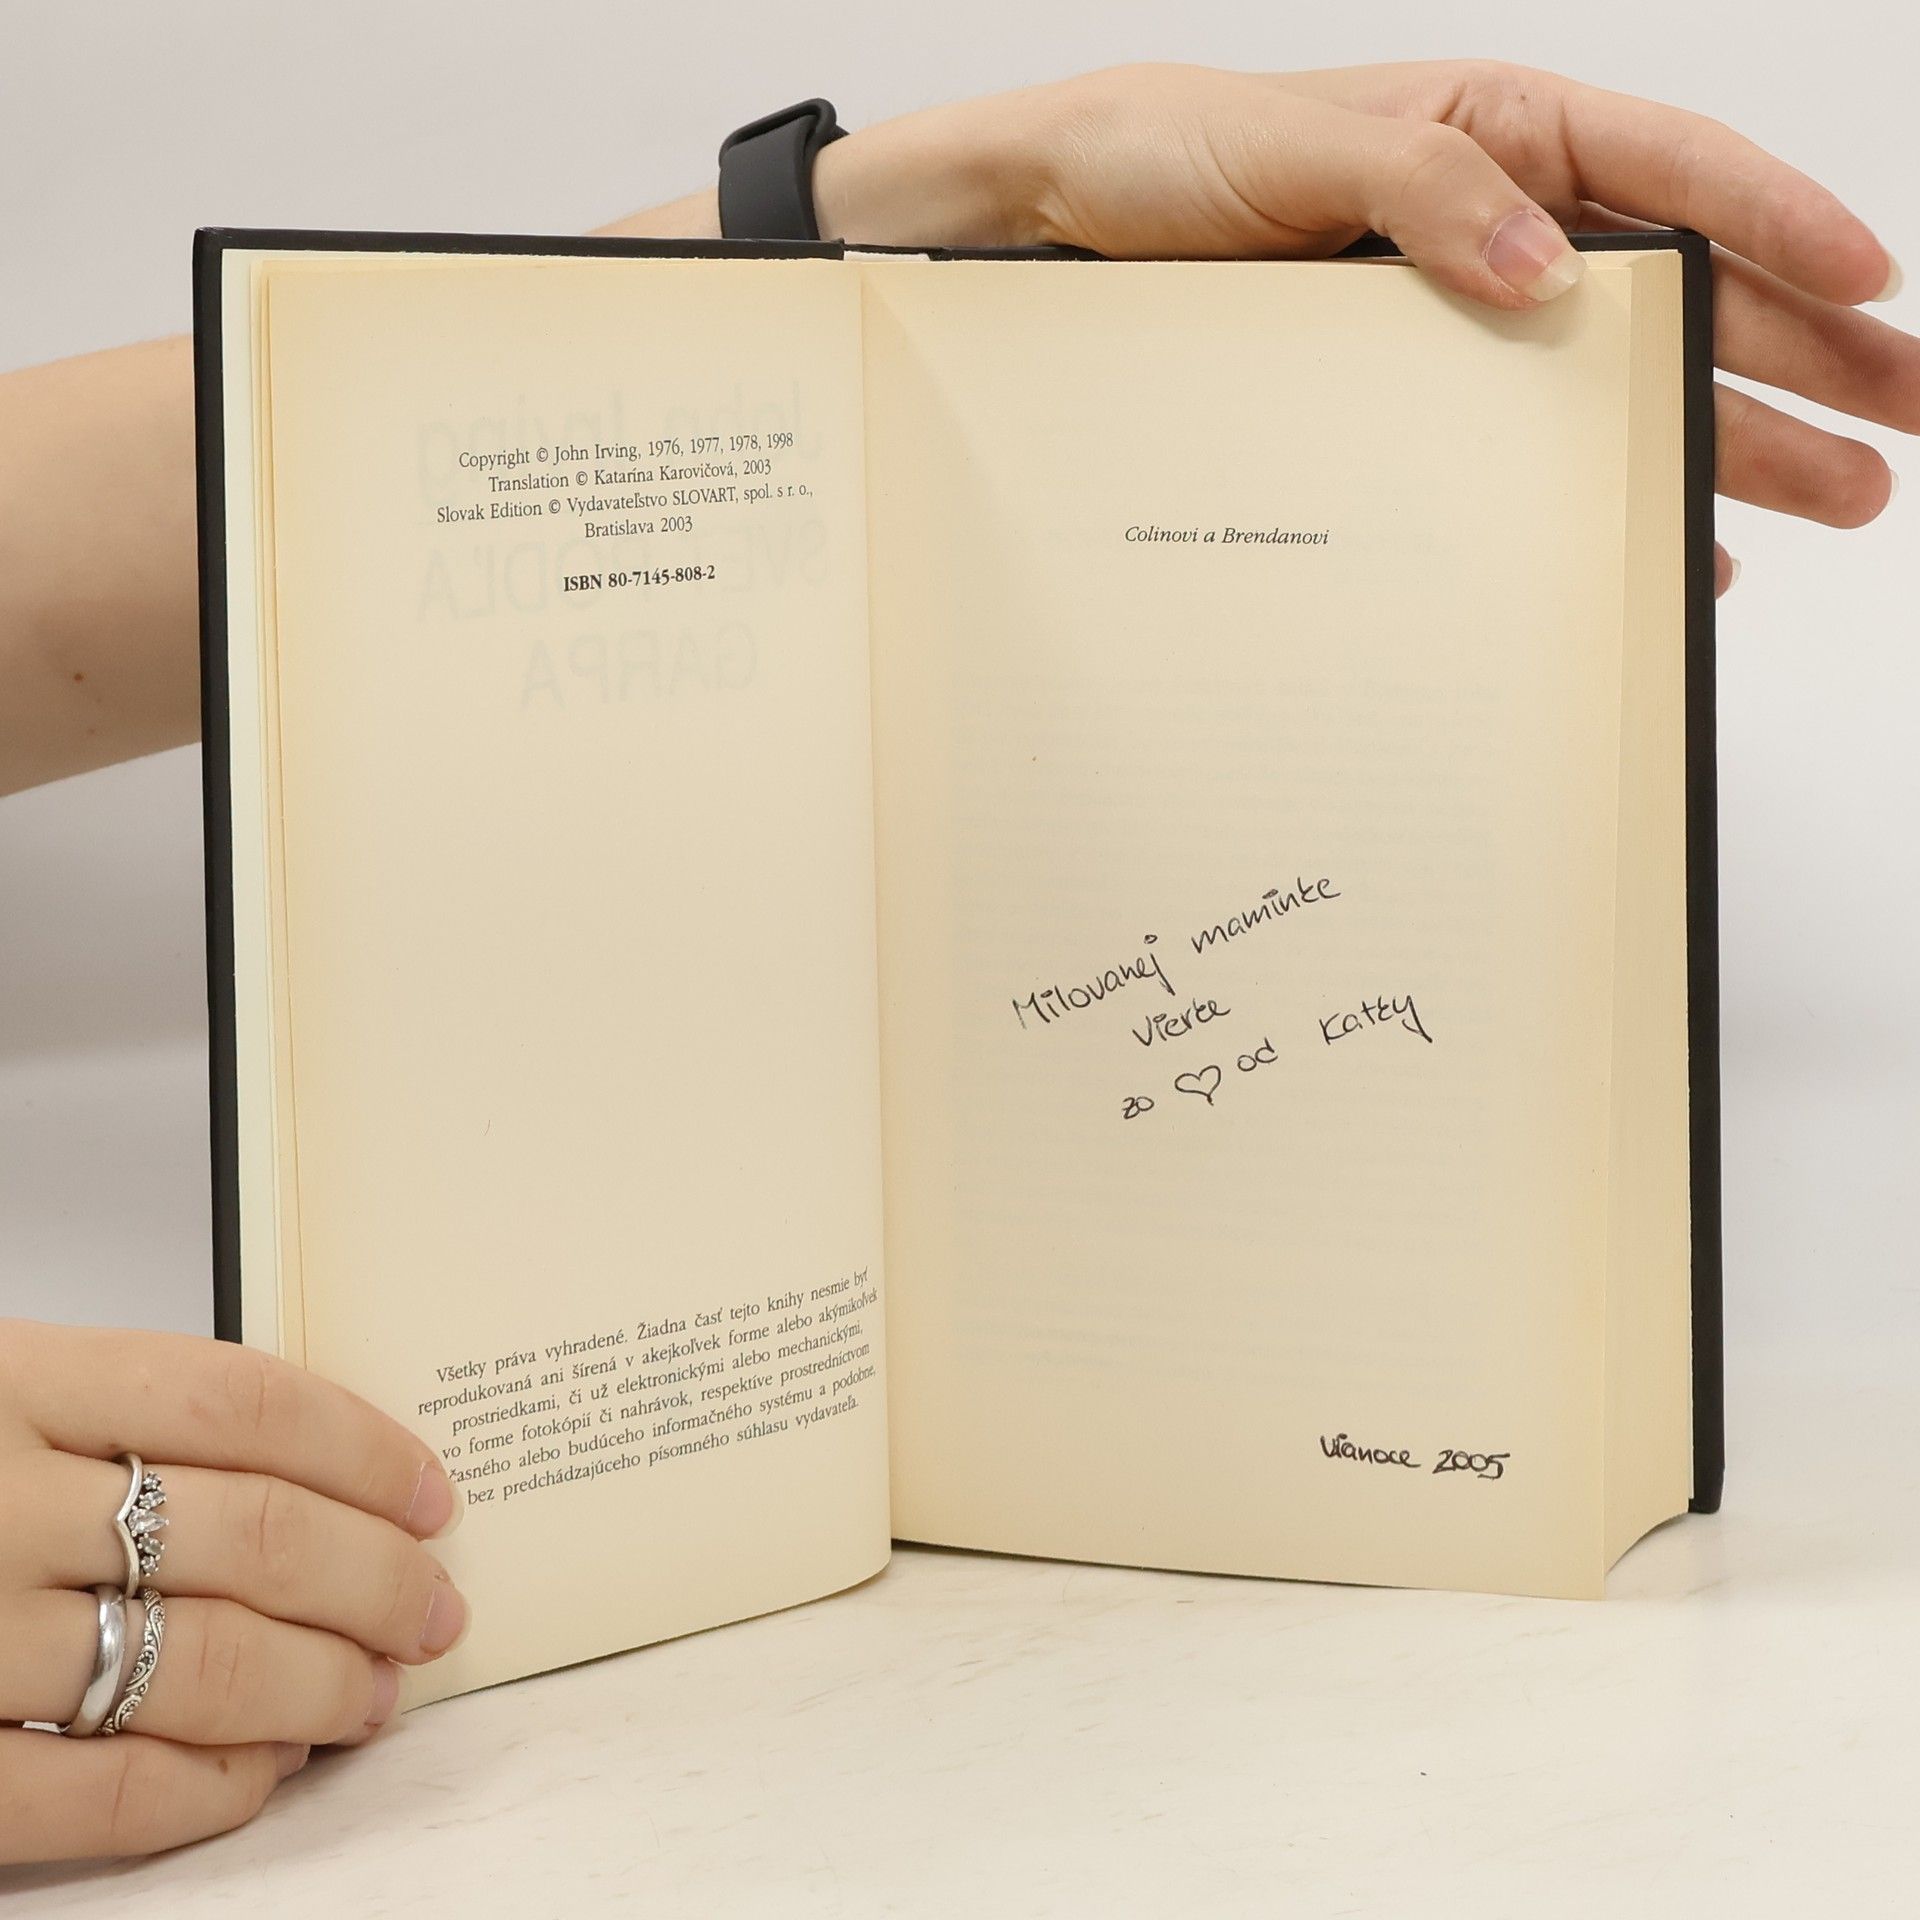 Copyright © John Irving, 1976, 1977, 1978, 1998
Translation © Katarína Karovičová, 2003
Slovak Edition © Vydavateľstvo SLOVART, spol. s r. o.,
Bratislava 2003
ISBN 80-7145-808-2
John Irving
SVET PODĽA
GARPA
Všetky práva vyhradené. Žiadna časť tejto knihy nesmie byť
reprodukovaná ani šírená v akejkoľvek forme alebo akýmikoľvek
prostriedkami, či už elektronickými alebo mechanickými,
vo forme fotokópií či nahrávok, respektíve prostredníctvom
časného alebo budúceho informačného systému a podobne,
bez predchádzajúceho písomného súhlasu vydavateľa.
Colinovi a Brendanovi
Milovanej maminke
Vierke
zo ♡ od Katky
Vianoce 2005